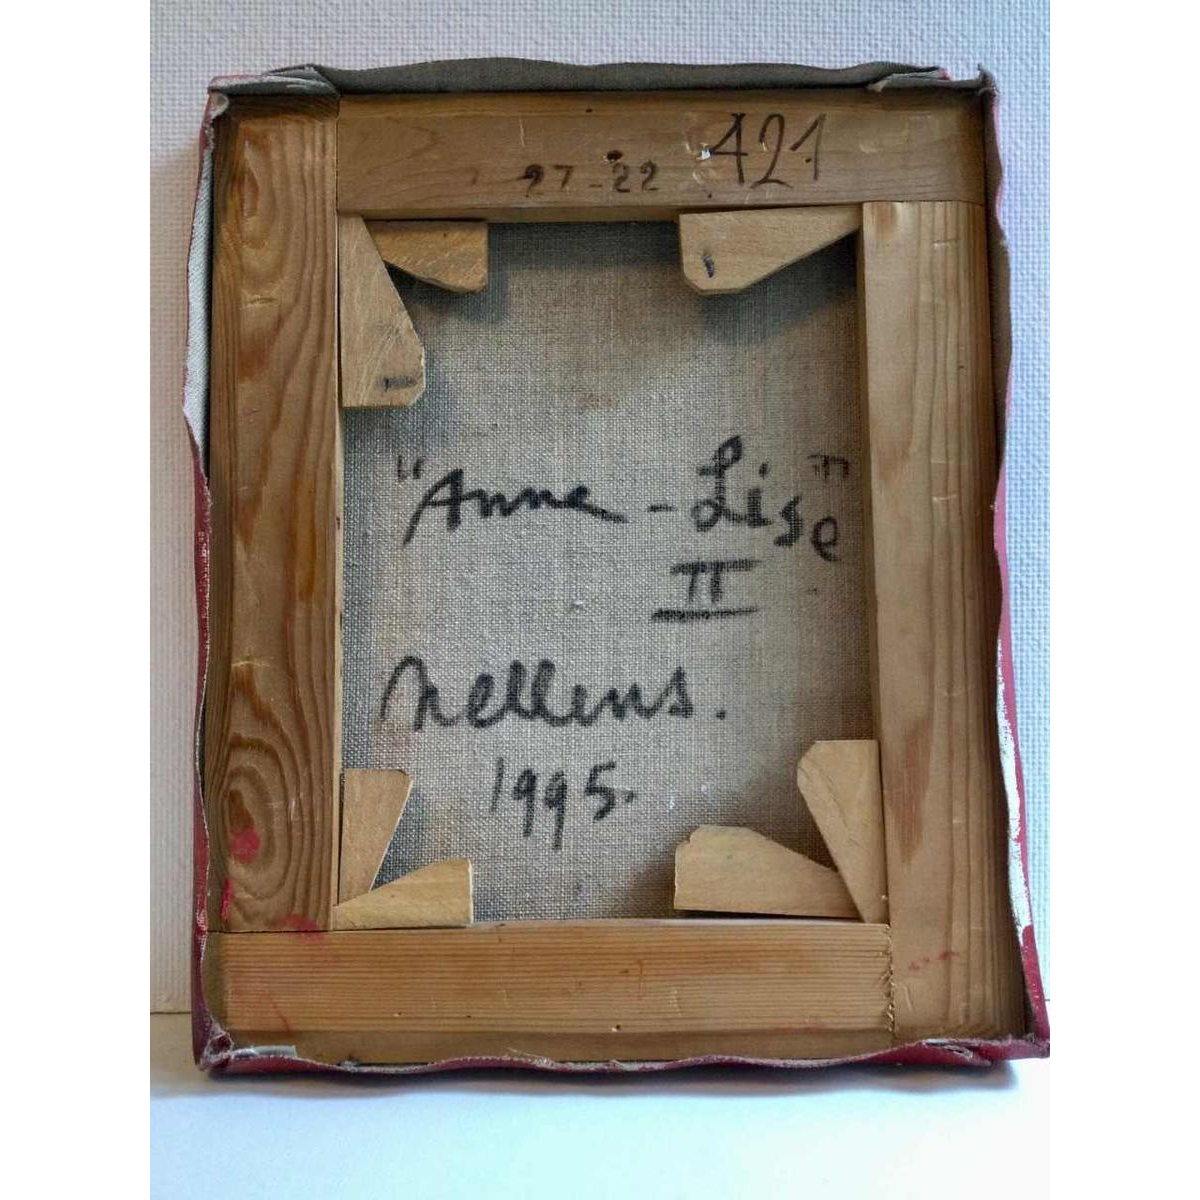 421
27-22
"Anne-Lise"
II
Nellens.
1995.